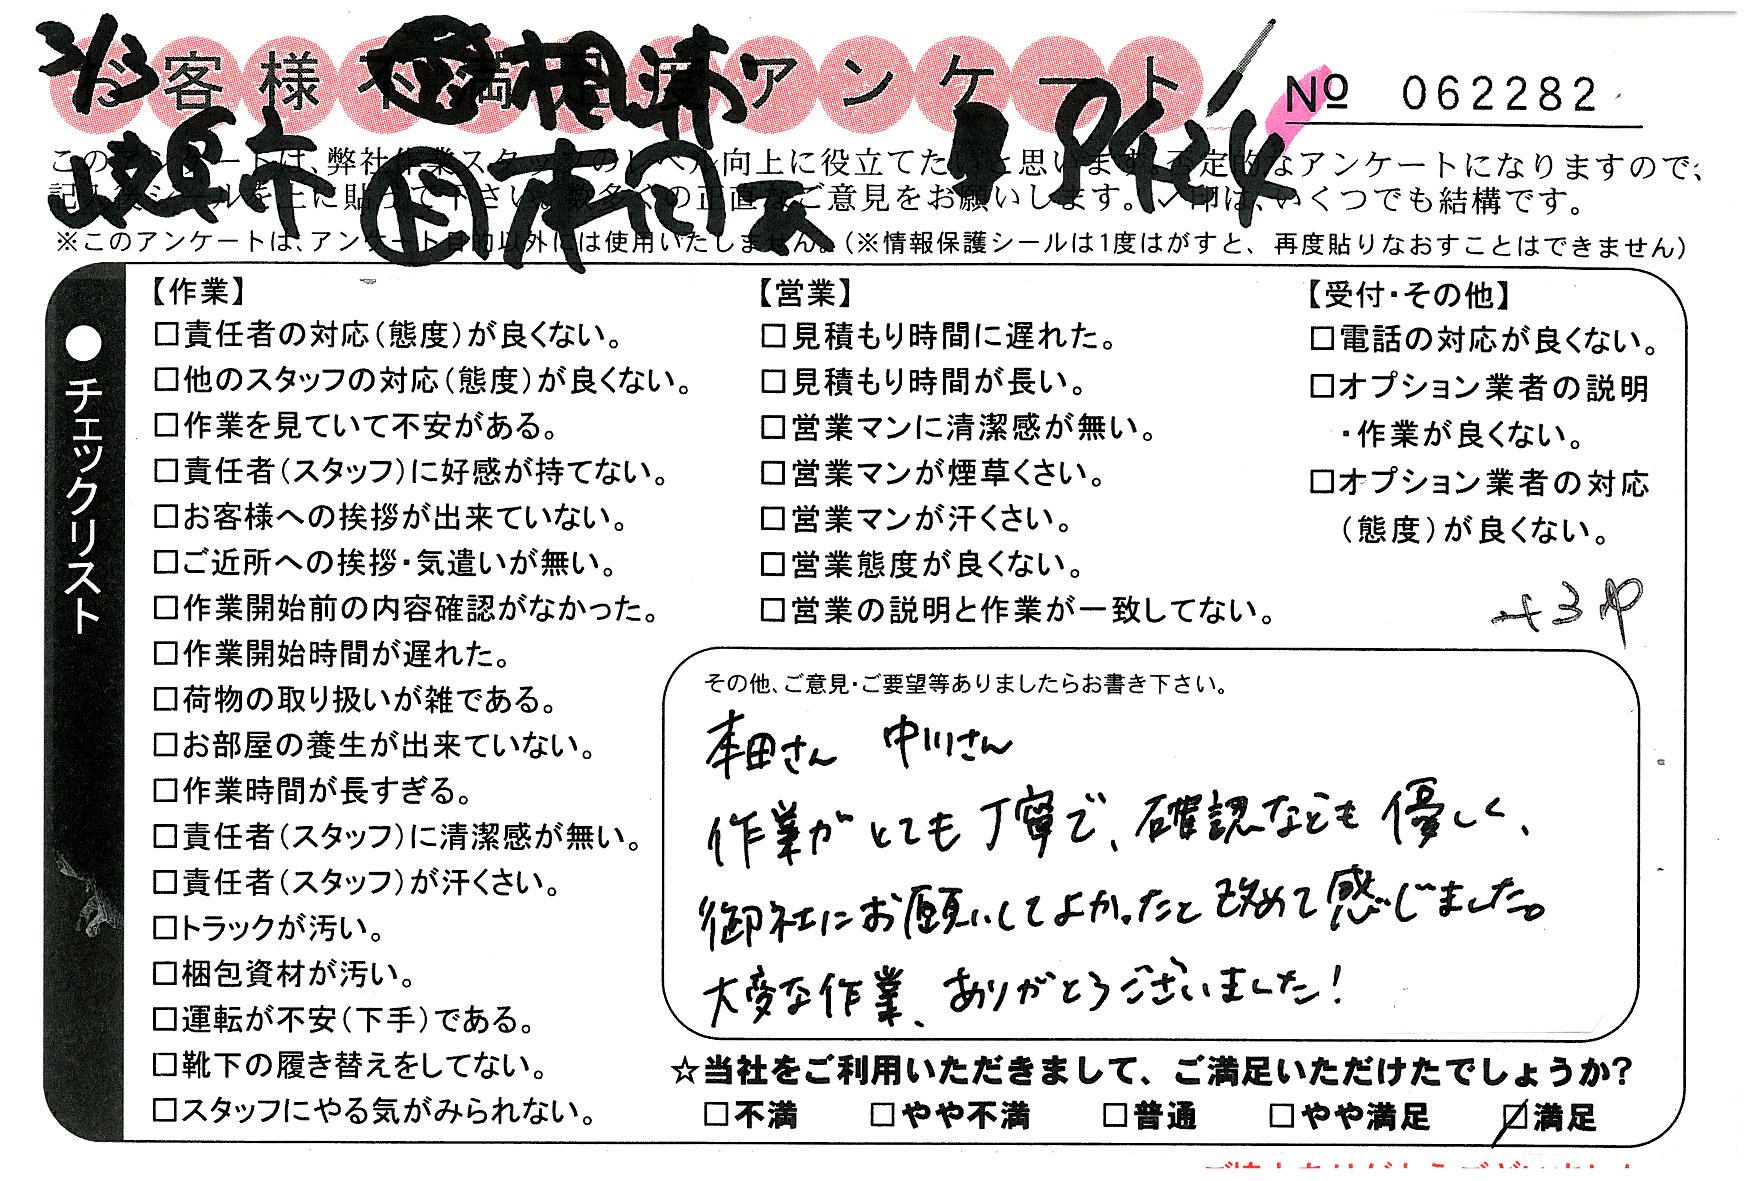 3/3
お客様不満足度アンケート
№ 062282
岐阜市
このアンケートは、弊社作業スタッフのレベル向上に役立てたいと思います。否定的なアンケートになりますので、
記入後シールを上に貼って下さい。数多くの正直なご意見をお願いします。✓印は、いくつでも結構です。
※このアンケートは、アンケート目的以外には使用いたしません。(※情報保護シールは1度はがすと、再度貼りなおすことはできません)
●チェックリスト
【作業】
□責任者の対応(態度)が良くない。
□他のスタッフの対応(態度)が良くない。
□作業を見ていて不安がある。
□責任者(スタッフ)に好感が持てない。
□お客様への挨拶が出来ていない。
□ご近所への挨拶・気遣いが無い。
□作業開始前の内容確認がなかった。
□作業開始時間が遅れた。
□荷物の取り扱いが雑である。
□お部屋の養生が出来ていない。
□作業時間が長すぎる。
□責任者(スタッフ)に清潔感が無い。
□責任者(スタッフ)が汗くさい。
□トラックが汚い。
□梱包資材が汚い。
□運転が不安(下手)である。
□靴下の履き替えをしてない。
□スタッフにやる気がみられない。
【営業】
□見積もり時間に遅れた。
□見積もり時間が長い。
□営業マンに清潔感が無い。
□営業マンが煙草くさい。
□営業マンが汗くさい。
□営業態度が良くない。
□営業の説明と作業が一致してない。
【受付・その他】
□電話の対応が良くない。
□オプション業者の説明
・作業が良くない。
□オプション業者の対応
(態度)が良くない。
その他、ご意見・ご要望等ありましたらお書き下さい。
本田さん 中川さん
作業がとても丁寧で、確認なども優しく、
御社にお願いしてよかったと改めて感じました。
大変な作業、ありがとうございました!
☆当社をご利用いただきまして、ご満足いただけたでしょうか?
□不満 □やや不満 □普通 □やや満足 ☑満足